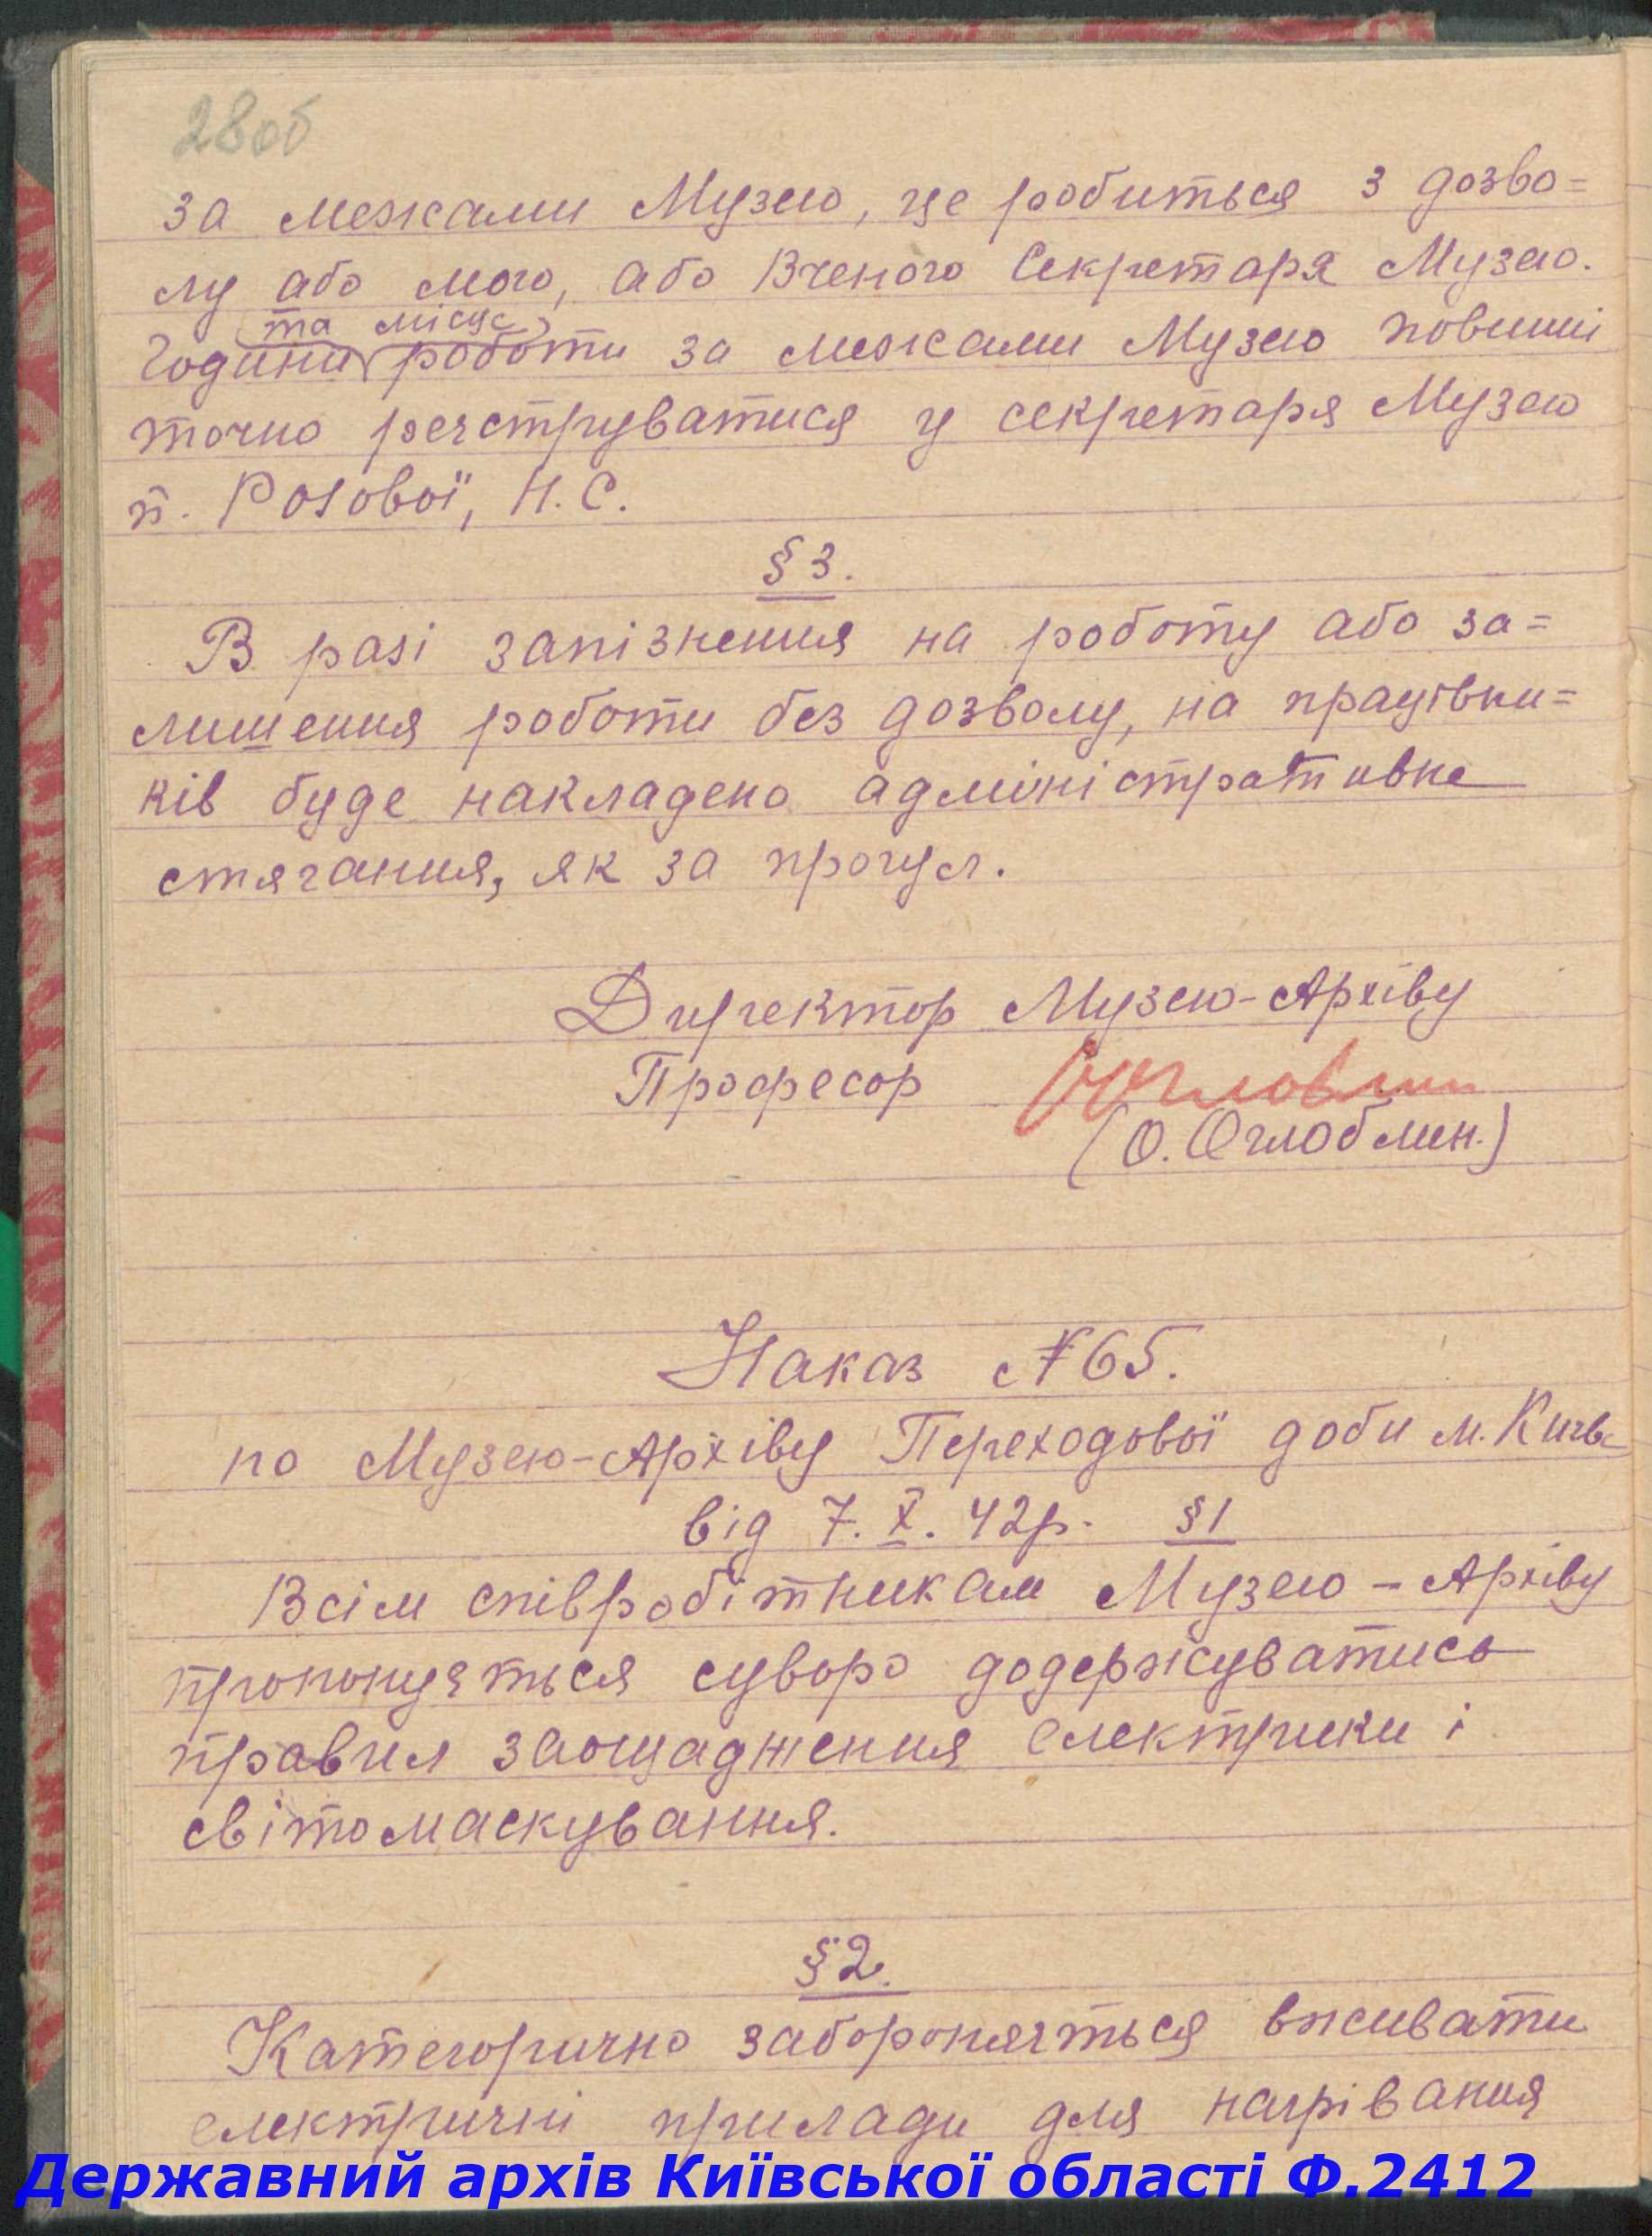 28об
за межами Музею, це робиться з дозво=
лу або мого, або Вченого Секретаря Музею.
та місце
Години роботи за межами Музею повинні
точно реєструватися у секретаря Музею
п. Розової, Н. С.
§ 3.
В разі запізнення на роботу або за=
лишення роботи без дозволу, на працівни=
ків буде накладено адміністративне
стягання, як за прогул.
Директор Музею-Архіву
Професор
(О. Оглоблин.)
Наказ № 65.
по Музею-Архіву Переходової доби м. Києва
від 7. X. 42р. §1
Всім співробітникам Музею - Архіву
пропонується суворо додержуватись
правил заощадження електрики і
світомаскування.
§2.
Категорично забороняється вживати
електричні прилади для нагрівання
Державний архів Київської області Ф.2412